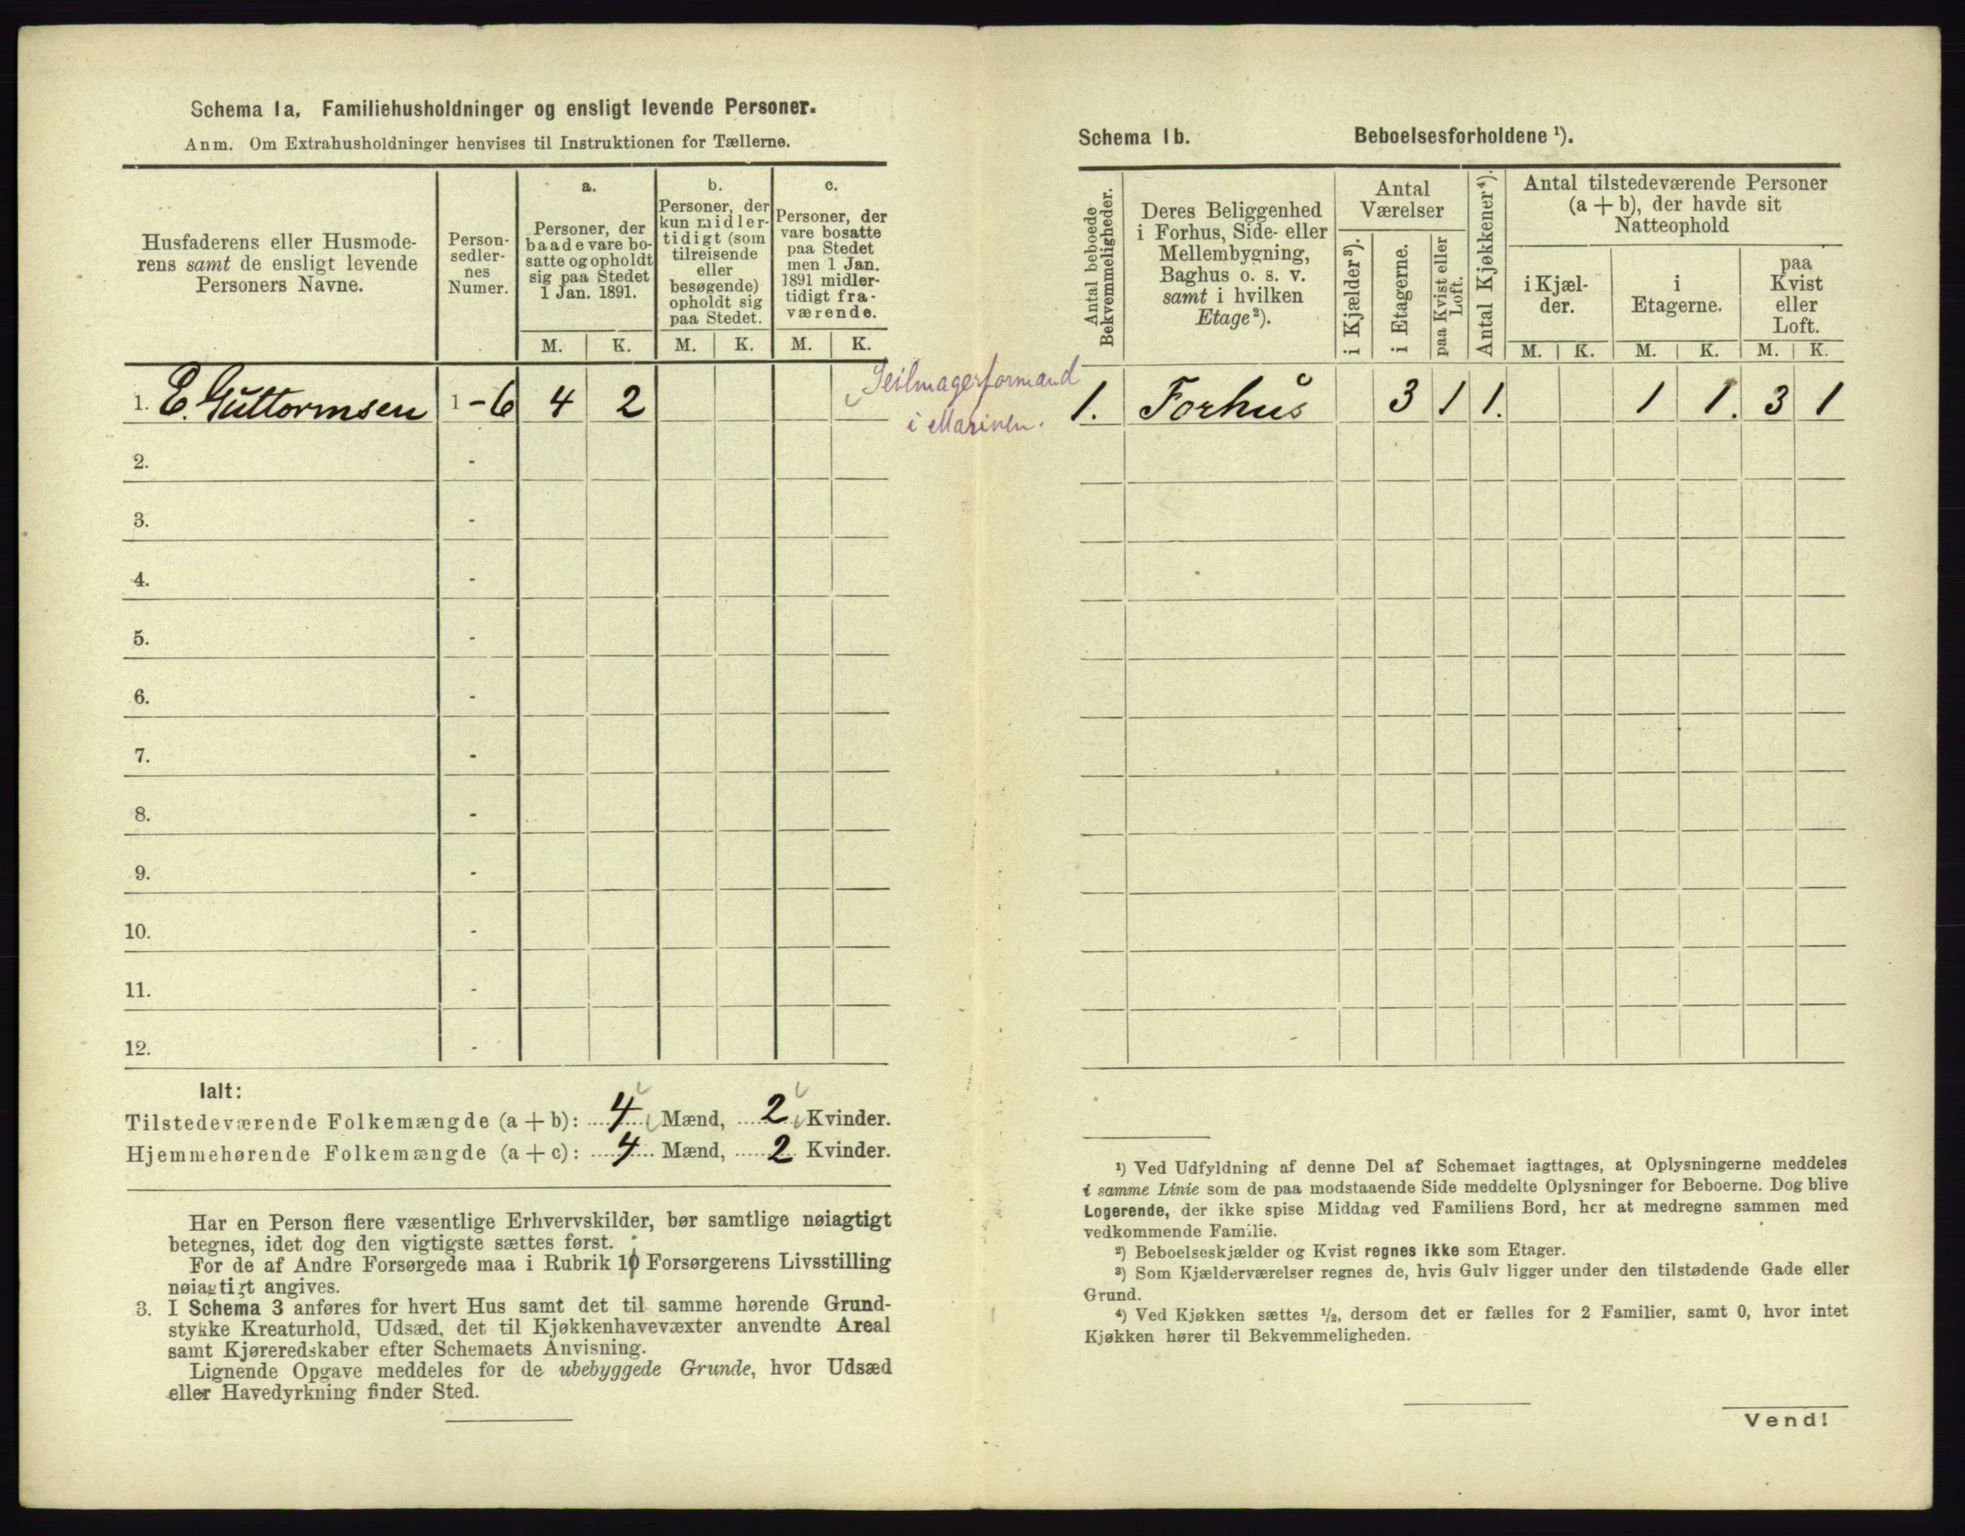 Schema 1a. Familiehusholdninger og ensligt levende Personer.
Anm. Om Extrahusholdninger henvises til Instruktionen for Tællerne.
Husfaderens eller Husmode-
rens samt de ensligt levende
Personers Navne.
Person-
sedler-
nes
Numer.
a.
Personer, der
baade vare bo-
satte og opholdt
sig paa Stedet
1 Jan. 1891.
b.
Personer, der
kun midler-
tidigt (som
tilreisende
eller
besøgende)
opholdt sig
paa Stedet.
c.
Personer, der
vare bosatte
paa Stedet
men 1 Jan.
1891 midler-
tidigt fra-
værende.
M. K. M. K. M. K.
1. E. Guttormsen 1 - 6 4 2
Seilmagerformand
i Marinen.
2. -
3. -
4. -
5. -
6. -
7. -
8. -
9. -
10. -
11. -
12. -
Ialt:
Tilstedeværende Folkemængde (a + b): 4 Mænd, 2 Kvinder.
Hjemmehørende Folkemængde (a + c): 4 Mænd, 2 Kvinder.
Har en Person flere væsentlige Erhvervskilder, bør samtlige nøiagtigt
betegnes, idet dog den vigtigste sættes først.
For de af Andre Forsørgede maa i Rubrik 10 Forsørgerens Livsstilling
nøiagtigt angives.
3. I Schema 3 anføres for hvert Hus samt det til samme hørende Grund-
stykke Kreaturhold, Udsæd, det til Kjøkkenhavevæxter anvendte Areal
samt Kjøreredskaber efter Schemaets Anvisning.
Lignende Opgave meddeles for de ubebyggede Grunde, hvor Udsæd
eller Havedyrkning finder Sted.
Schema 1b. Beboelsesforholdene ¹).
Antal beboede
Bekvemmeligheder.
Deres Beliggenhed
i Forhus, Side- eller
Mellembygning,
Baghus o. s. v.
samt i hvilken
Etage²).
Antal
Værelser
i Kjælder³).
i Etagerne.
paa Kvist eller
Loft.
Antal Kjøkkener⁴).
Antal tilstedeværende Personer
(a + b), der havde sit
Natteophold
i Kjæl-
der.
i
Etagerne.
paa
Kvist
eller
Loft.
M. K. M. K. M. K.
1. Forhus 3 1 1. 1 1. 3 1
¹) Ved Udfyldning af denne Del af Schemaet iagttages, at Oplysningerne meddeles
i samme Linie som de paa modstaaende Side meddelte Oplysninger for Beboerne. Dog blive
Logerende, der ikke spise Middag ved Familiens Bord, her at medregne sammen med
vedkommende Familie.
²) Beboelseskjælder og Kvist regnes ikke som Etager.
³) Som Kjælderværelser regnes de, hvis Gulv ligger under den tilstødende Gade eller
Grund.
⁴) Ved Kjøkken sættes ½, dersom det er fælles for 2 Familier, samt 0, hvor intet
Kjøkken hører til Bekvemmeligheden.
Vend!